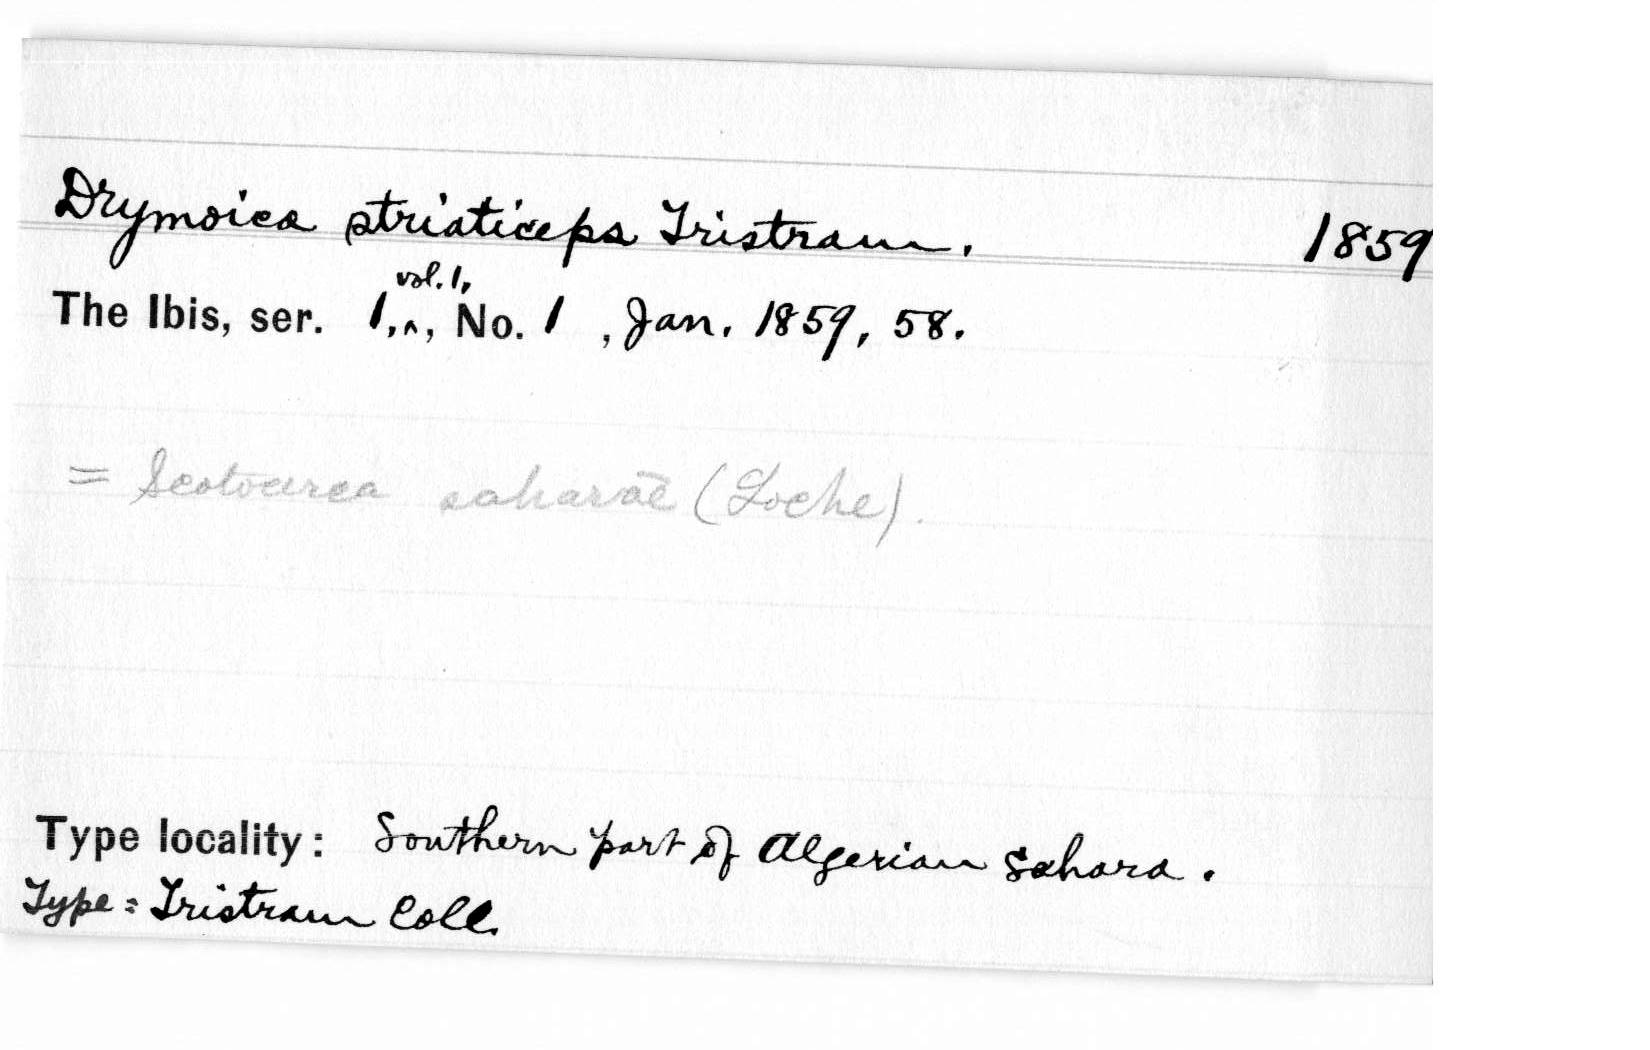 Drymoica striaticeps Tristram. 1859
The Ibis, ser. 1, vol. 1, , No. 1 , Jan. 1859, 58.
= Scotocerca saharae (Loche).
Type locality: Southern part of Algerian Sahara.
Type: Tristram Coll.